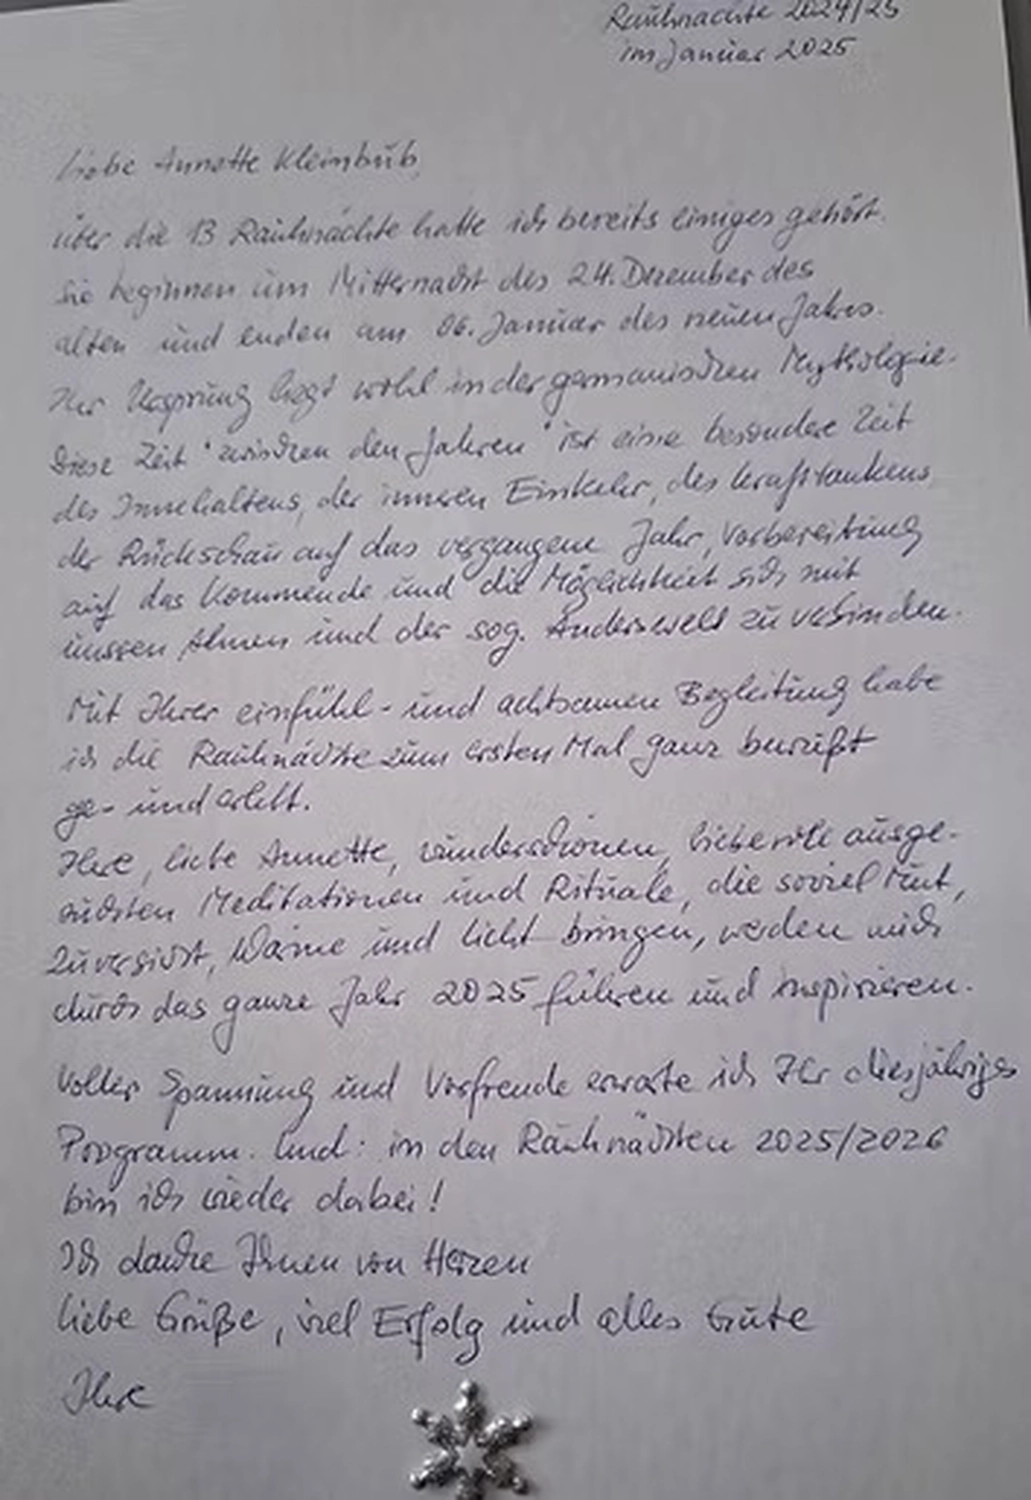 Rauhnächte 2024/25
im Januar 2025
Liebe Annette Kleinbub,
über die 13 Rauhnächte hatte ich bereits einiges gehört.
Sie beginnen um Mitternacht des 24. Dezember des
alten und enden am 06. Januar des neuen Jahres.
Ihr Ursprung liegt wohl in der germanischen Mythologie.
Diese Zeit "zwischen den Jahren" ist eine besondere Zeit
des Innehaltens, der inneren Einkehr, des Krafttankens,
der Rückschau auf das vergangene Jahr, Vorbereitung
auf das Kommende und die Möglichkeit sich mit
unseren Ahnen und der sog. Anderswelt zu verbinden.
Mit Ihrer einfühl- und achtsamen Begleitung habe
ich die Rauhnächte zum ersten Mal ganz bewußt
ge- und erlebt.
Ihre, liebe Annette, wunderschönen, liebevoll ausge-
suchten Meditationen und Rituale, die soviel Mut,
Zuversicht, Wärme und Licht bringen, werden mich
durch das ganze Jahr 2025 führen und inspirieren.
Voller Spannung und Vorfreude erwarte ich Ihr diesjähriges
Programm. Und: in den Rauhnächten 2025/2026
bin ich wieder dabei!
Ich danke Ihnen von Herzen
liebe Grüße, viel Erfolg und alles Gute
Ihre